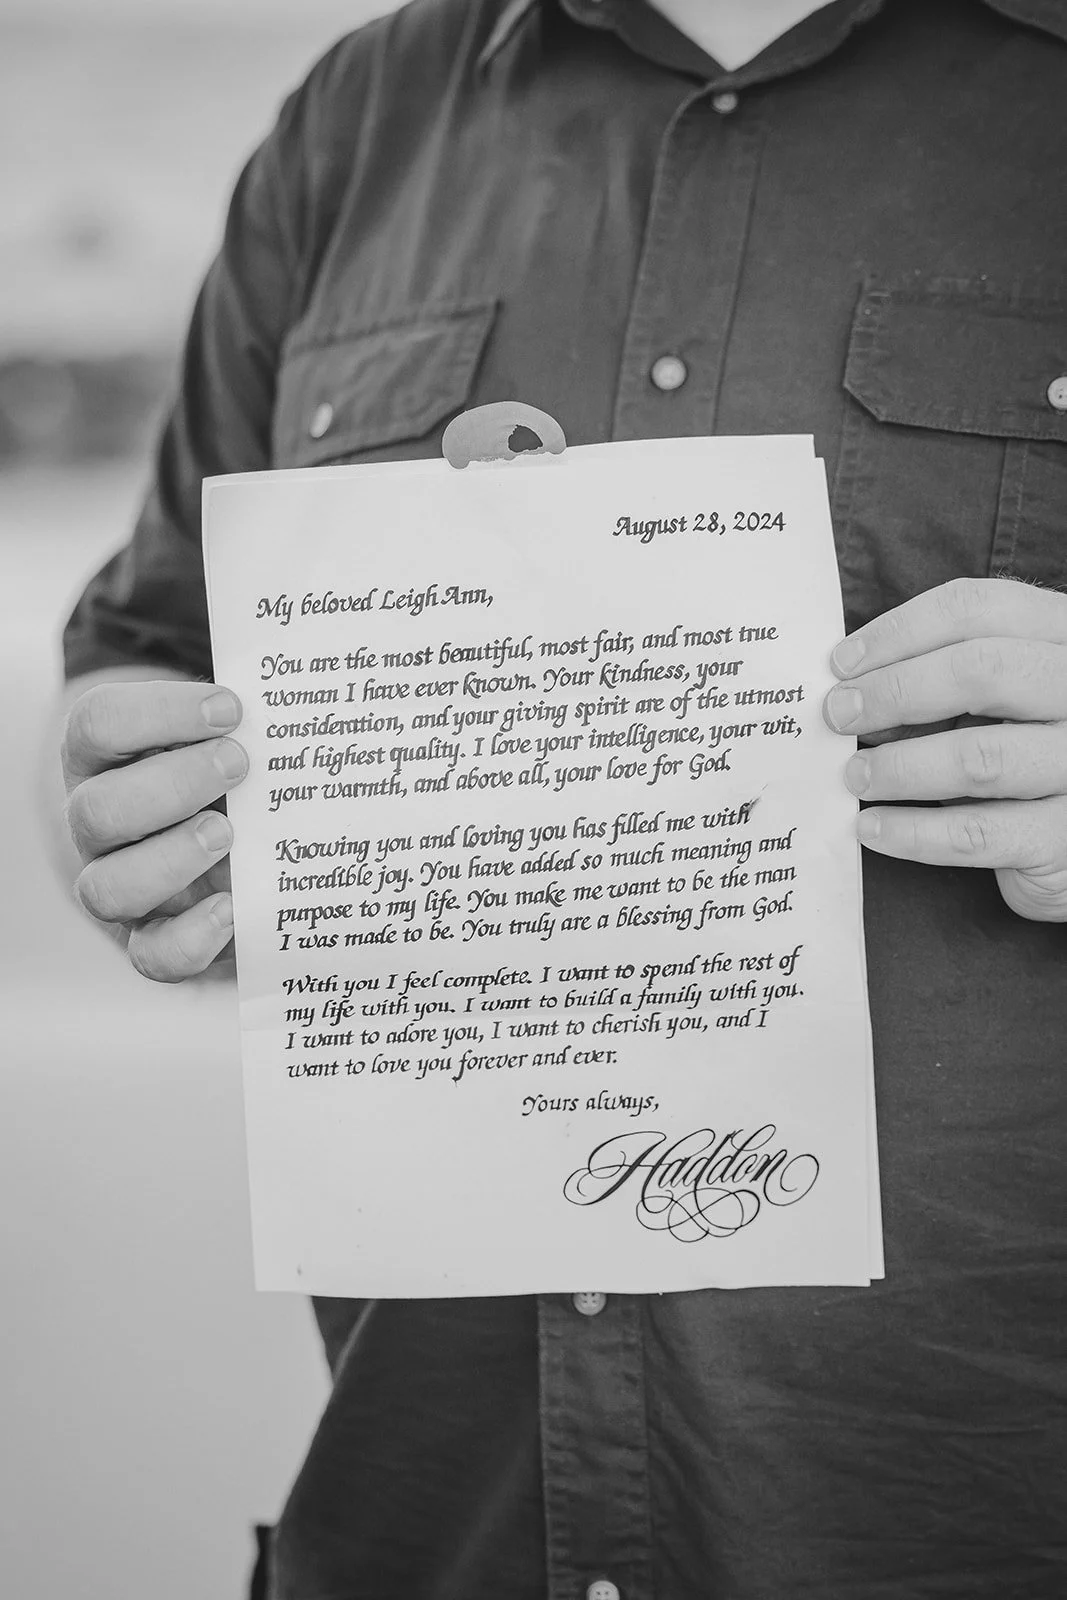 August 28, 2024
My beloved Leigh Ann,
You are the most beautiful, most fair, and most true
woman I have ever known. Your kindness, your
consideration, and your giving spirit are of the utmost
and highest quality. I love your intelligence, your wit,
your warmth, and above all, your love for God.
Knowing you and loving you has filled me with
incredible joy. You have added so much meaning and
purpose to my life. You make me want to be the man
I was made to be. You truly are a blessing from God.
With you I feel complete. I want to spend the rest of
my life with you. I want to build a family with you.
I want to adore you, I want to cherish you, and I
want to love you forever and ever.
Yours always,
Haddon